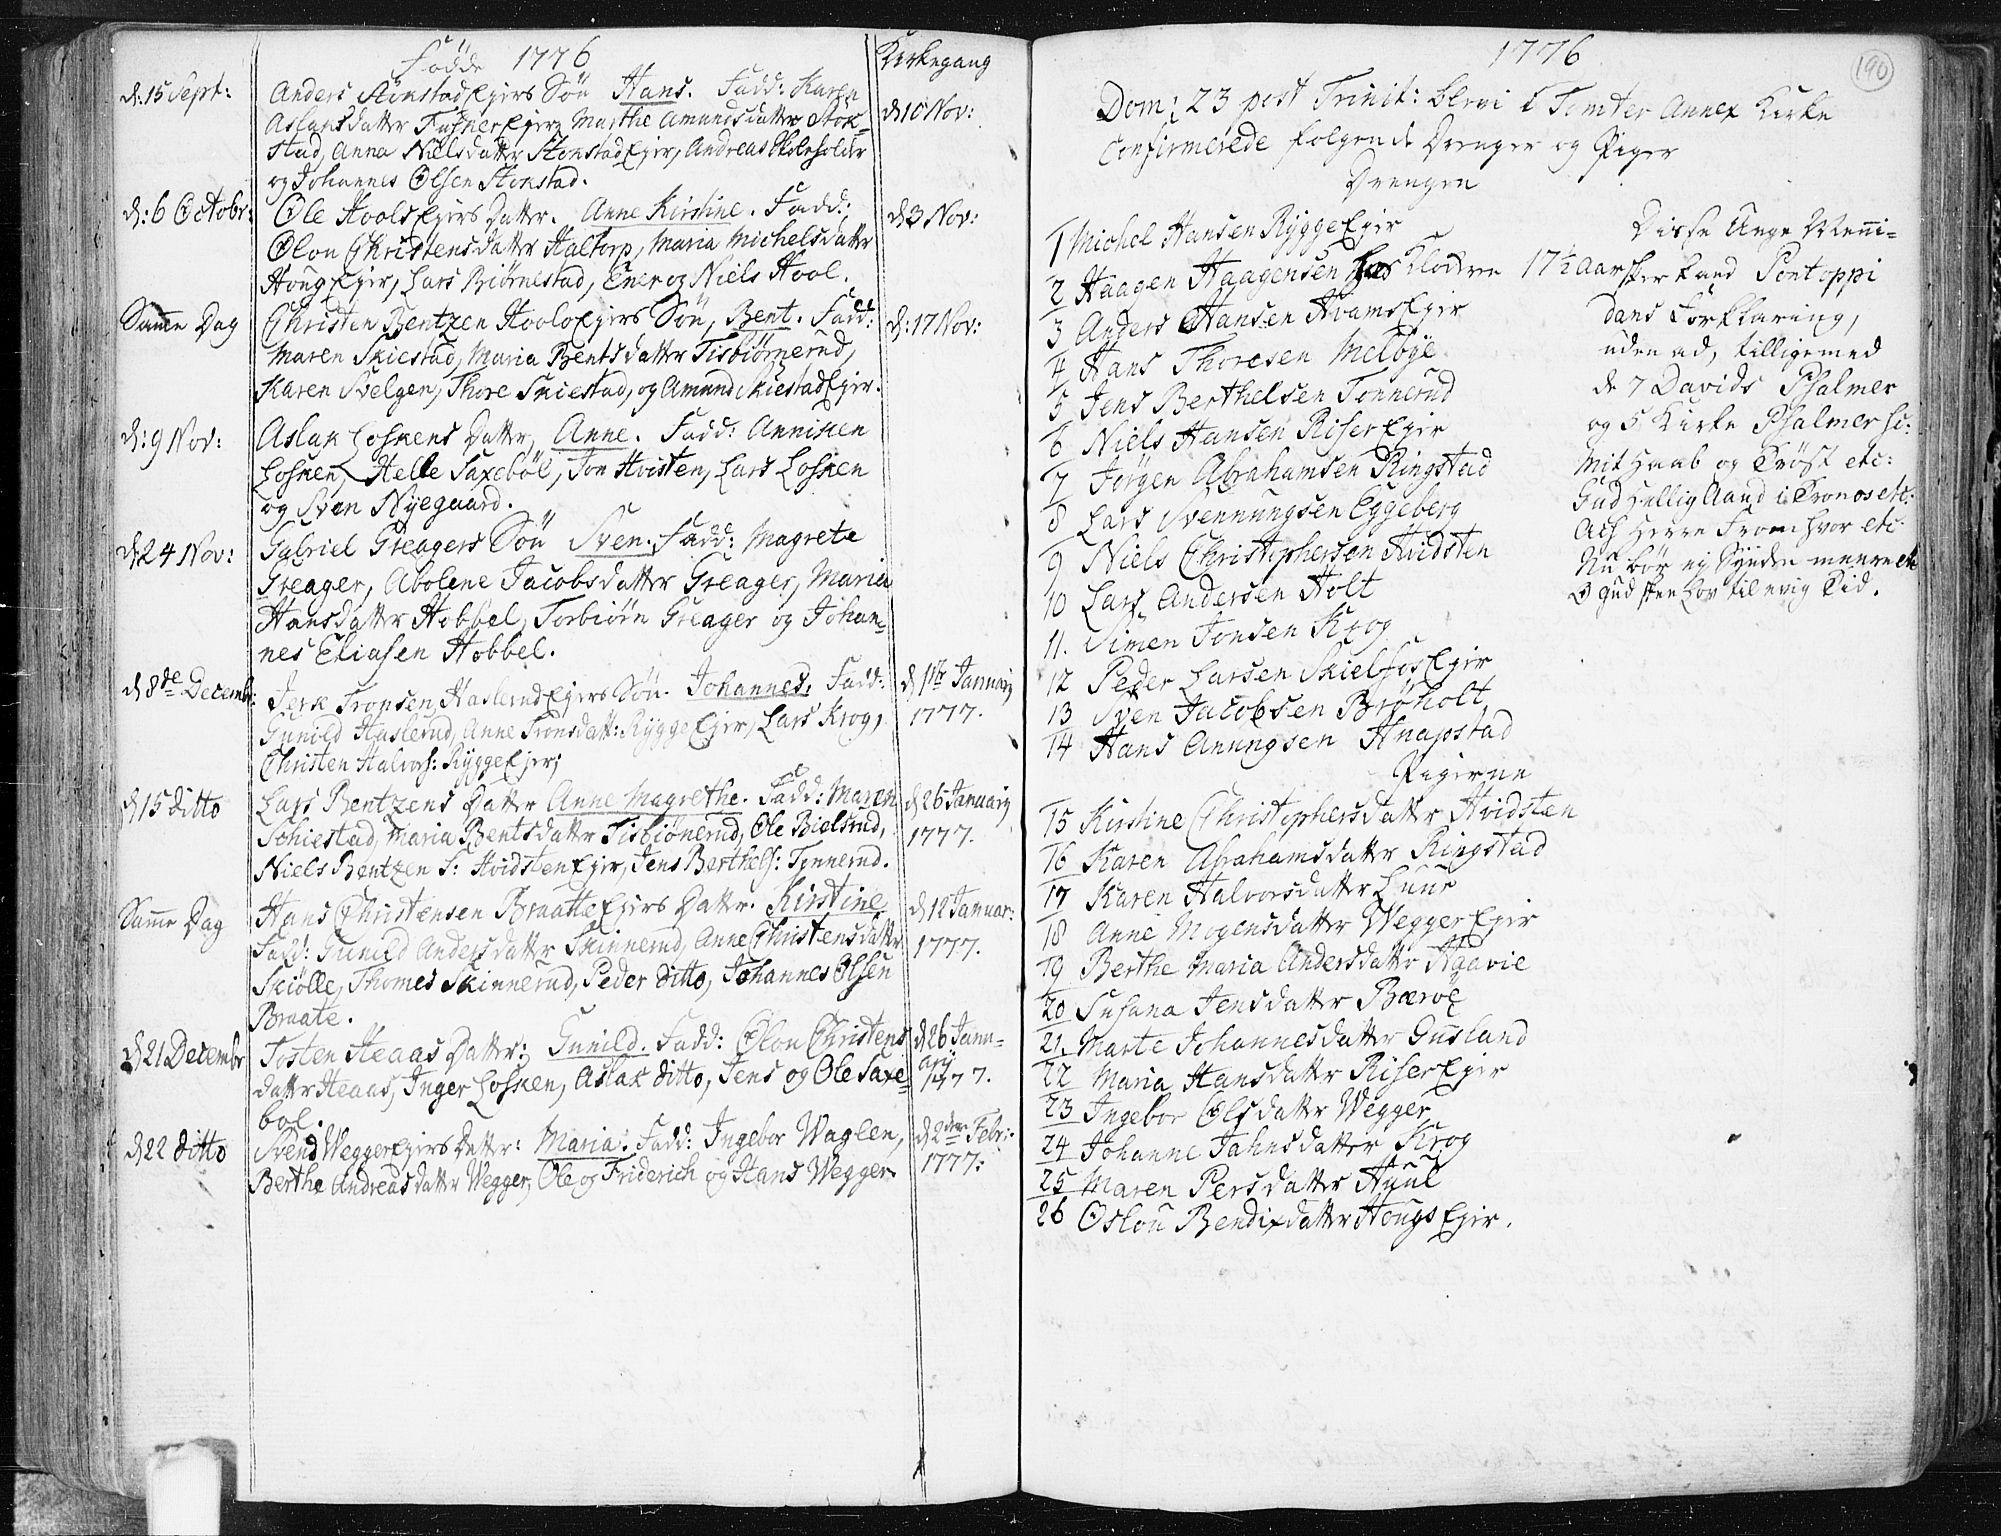 Födde 1776
Kirkegang
d: 15 Sept:
Anders Stenstad Ejers Sön Hans. Fadd: Karen
Aslaksdatter Ejer, Marthe Amundsdatter Stok-
stad, Anna Nielsdatter Stenstad Ejer, Andreas Skoleholder
og Johannes Olsen Stenstad.
d 10 Nov:
d: 6 Octobr:
Ole Hools Ejers Datter. Anne Kirstine. Fadd:
Olou Christensdatter Haltorp, Maria Michelsdatter
Houg Ejer, Lars Biörnestad, Ener og Niels Hool.
d 3 Nov:
Samme Dag
Christen Bentzen Hools Ejers Sön, Bent. Fadd:
Maren Skiestad, Maria Bentsdatter Tisbiörnerud,
Karen Svelgen, Thore Skiestad, og Amund Skiestad Ejer.
d: 17 Nov:
d: 9 Nov:
Aslak Losnens Datter, Anne. Fadd: Anniken
Losnen, Helle Saxeböl, Jon Hvisten, Lars Losnen
og Sven Nyegaard.
d: 24 Nov:
Gabriel Greagers Sön Sven. Fadd: Magrete
Greager, Abolene Jacobsdatter Greager, Maria
Hansdatter Hobbel, Torbiörn Greager og Johan-
nes Eliasen Hobbel.
d 8de Decembr:
Jens Tronsen, Haslerud Ejers Sön. Johannes. Fadd:
Gunild Haslerud, Anne Tronsdatt: Rygge Ejer, Lars Krog,
Christen Halvors: Rygge Ejer;
d 1ste Januarij
1777.
d 15 ditto
Lars Bentzens Datter Anne Magrethe. Fadd: Maren
Schiestad, Maria Bentsdatter Tisbiönerud, Ole Bielsrud,
Niels Bentzen S: Hvidsten Ejer, Jens Berthels: Tönnerud.
d 26 Januarij
1777.
Samme Dag
Hans Christensen Braate Ejers Datter. Kirstine
Fadd: Gunild Andersdatter Skinnerud, Anne Christensdatter
Skiölle, Thomes Skinnerud, Peder ditto, Johannes Olsen
Braate.
d 12 Januar:
1777.
d 21 Decembr
Tosten Heaas Datter: Gunild. Fadd: Olou Christens
datter Heaas, Inger Losnen, Aslak ditto, Jens og Ole Saxe-
bol.
d 26 Janu-
arij
1777.
d 22 ditto
Svend Wegger Ejers Datter: Maria. Fadd: Ingebor Waglen,
Berthe Andreasdatter Wegger, Ole og Friderich og Hans Wegger
d 2den Febr:
1777:
1776
190
Dom: 23 post Trinit: blevi i Tomter Annex Kirke
Confirmerede folgende Drenger og Piger
Drengen
1 Michel Hansen Rygge Ejer
2 Haagen Haagensen hos Klokkeren 17 1/2 Aar
3 Anders Hansen Hvams Ejer
4 Hans Thoresen Melbye
5 Jens Berthelsen Tonnerud
6 Niels Hansen Riser Ejer
7 Jörgen Abrahamsen Ringstad
8 Lars Svennungsen Eggeberg
9 Niels Christophersen Hvidsten
10 Lars Andersen Holt
11. Simen Jonsen Krog
12 Peder Larsen Skielfos Ejer
13 Sven Jacobsen Bröholt
14 Hans Anungsen Knapstad
Pigerne
15 Kirstine Christophersdatter Hvidsten
16 Karen Abrahamsdatter Ringstad
17 Karen Halvorsdatter Huur
18 Anne Mogensdatter Wegger Ejer
19 Berthe Maria Andersdatter Agavie
20 Susana Jensdatter Bæroe
21. Marte Johannesdatter Gusland
22 Maria Hansdatter Riser Ejer
23 Ingebor Olsdatter Wegger
24 Johanne Jahnsdatter Krog
25 Maren Persdatter Hyul
26 Oslou Bendixdatter Hougs Ejer.
Disse Unge Menni-
sker kand Pontoppi
dans Forklaring,
uden ad, tilligemed
de 7 Davids Psalmer
og 5 Kirke Psalmer sc:
Mit Haab og Tröst etc:
Gud Hellig Aand i Tronos etc:
Ach Herre From hvor etc:
Nu bör ej Synden meere etc
O Gud skee Lov til evig Tid.